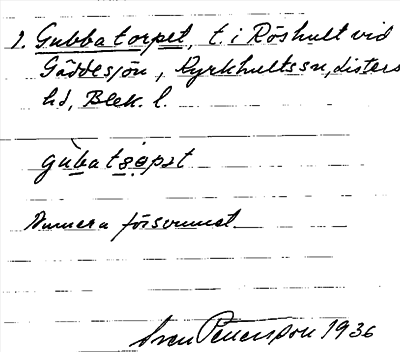 1. Gubbatorpet, t. i Röshult vid
Gäddesjön, Kyrkhultssn, Listers
hd, Blek. l.
gùbatɔrpət
Numera försvunnet
Sven Petersson 1936